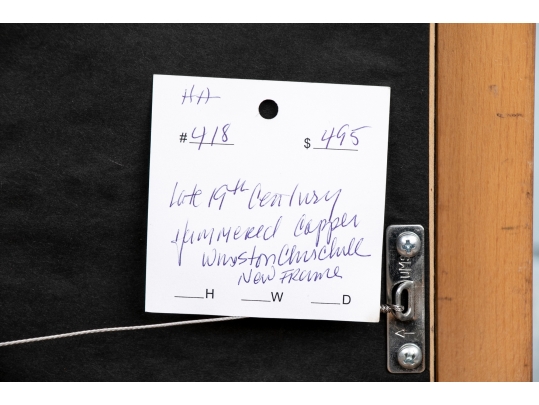 HA
# 418 $ 495
Late 19th Century
Hammered Copper
Winston Churchill
New Frame
___H ___W ___D